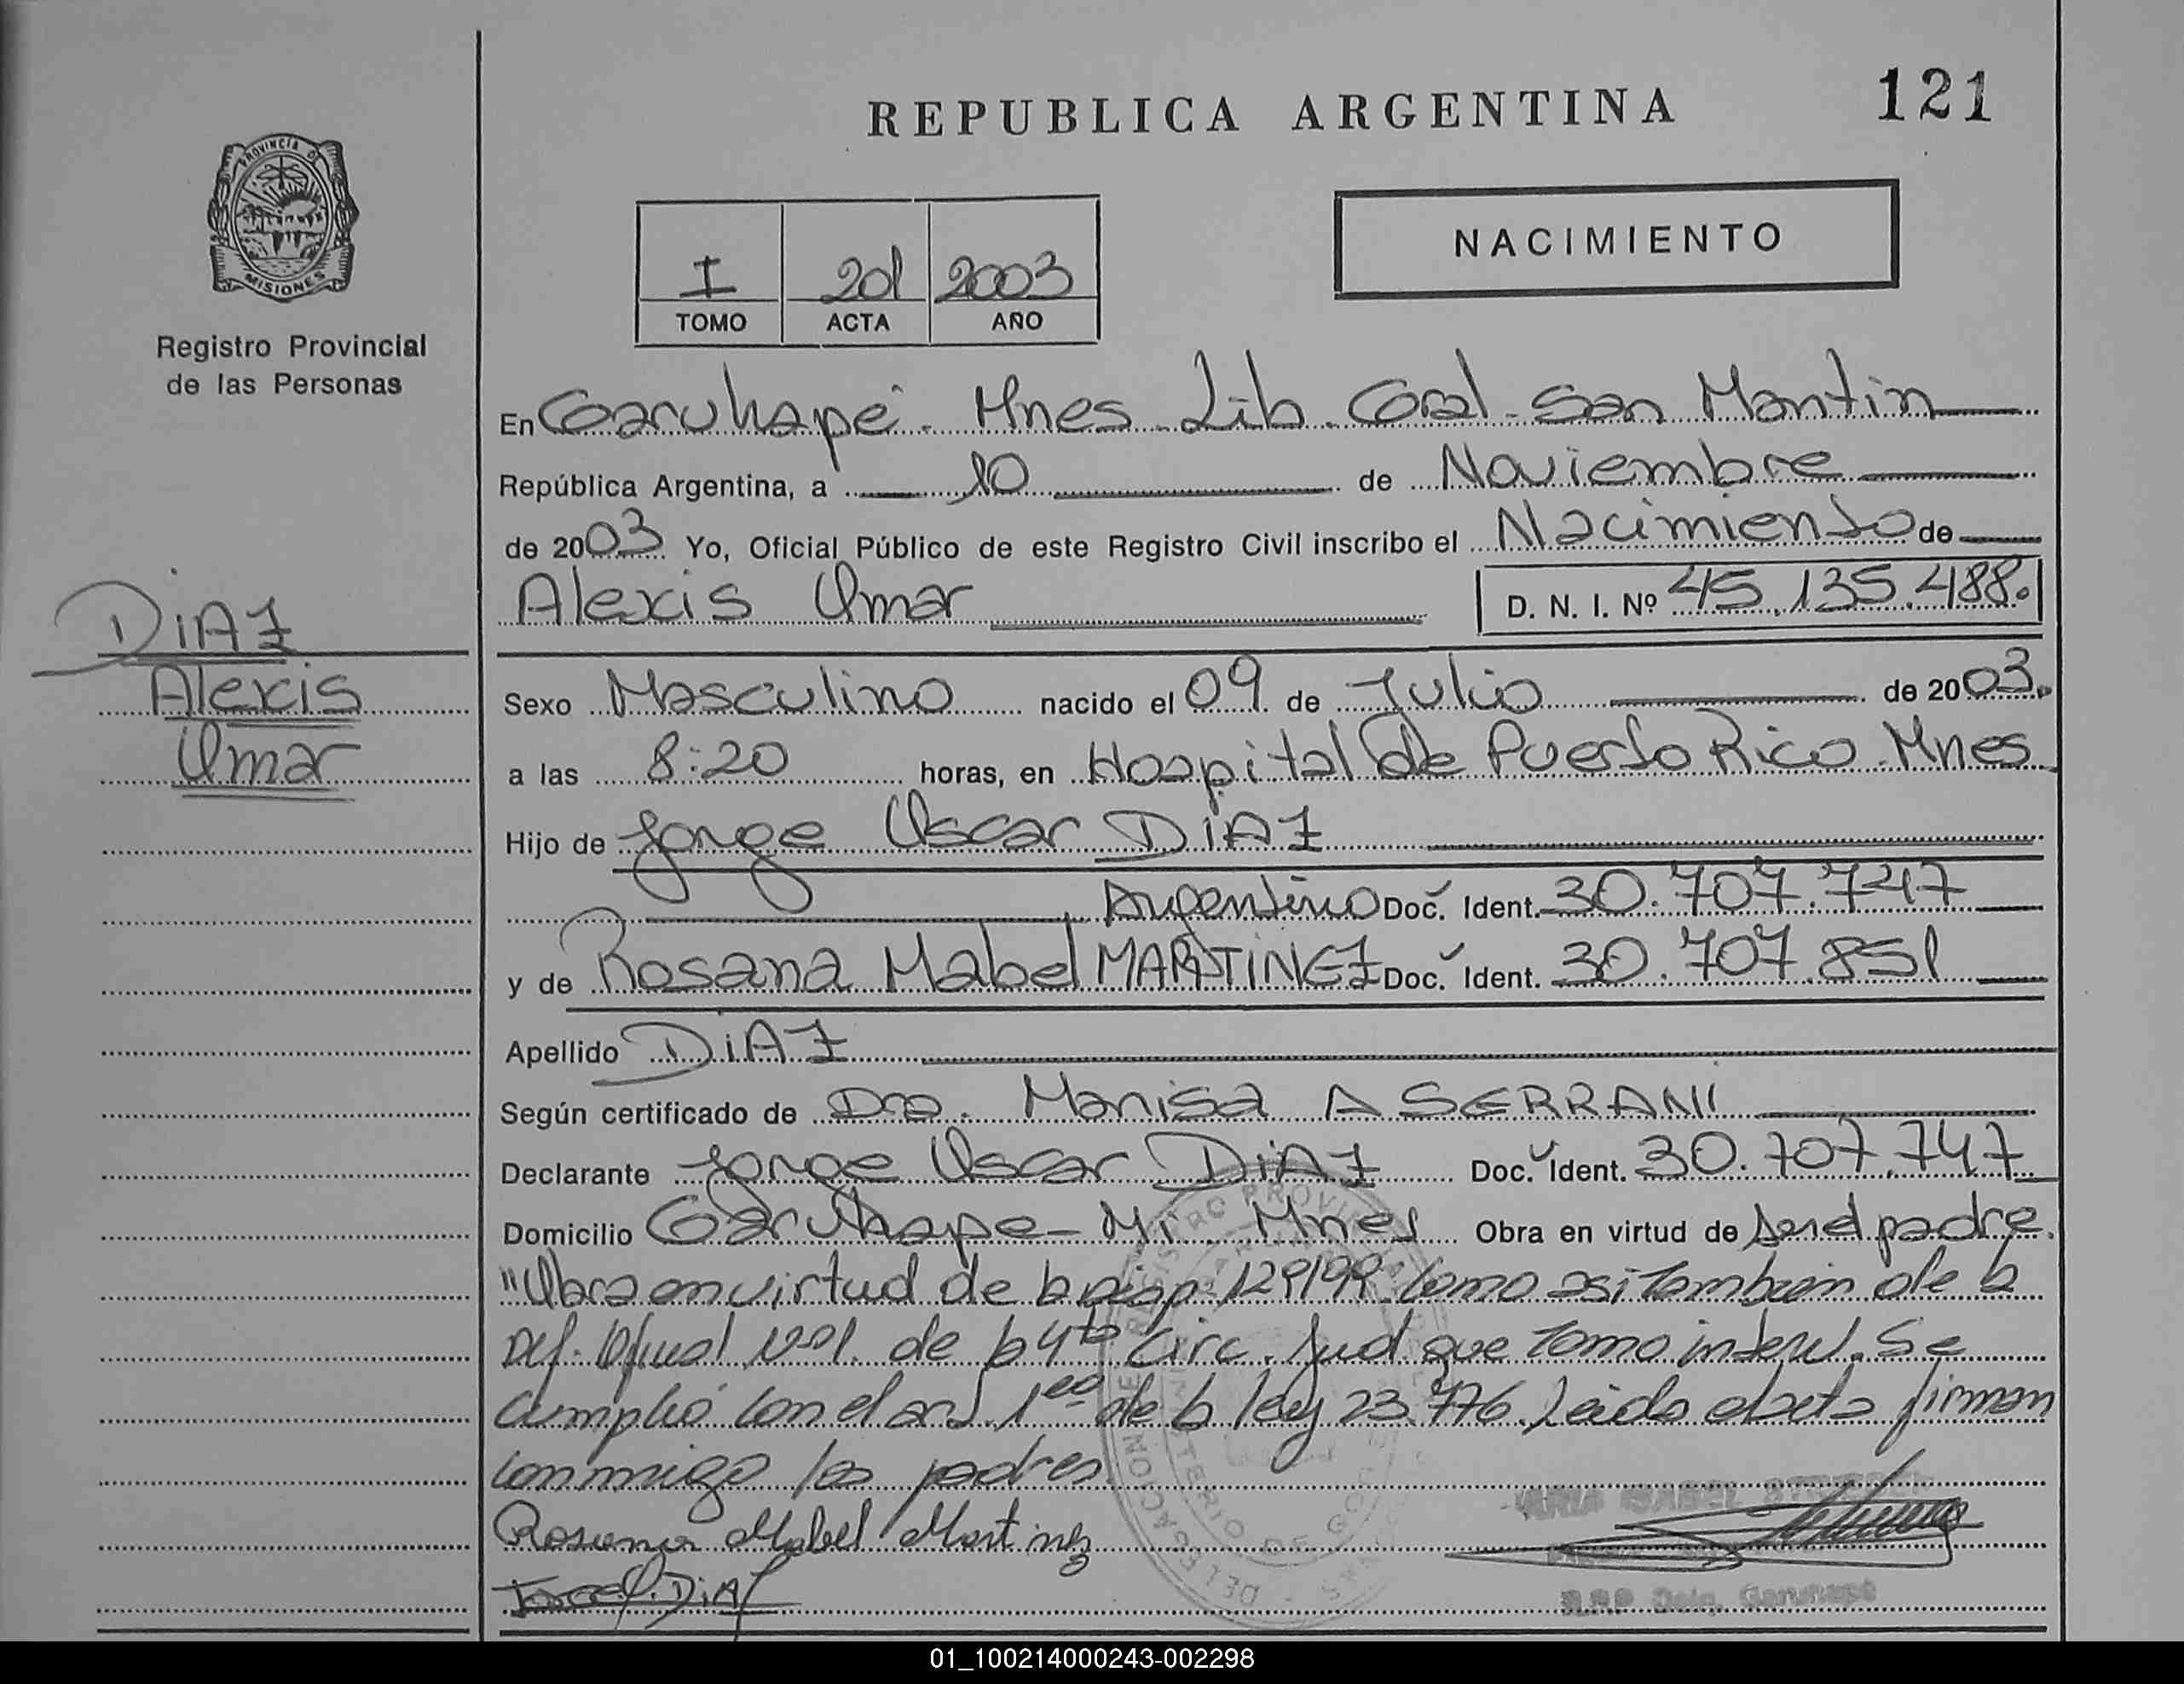 REPUBLICA ARGENTINA
121
PROVINCIA DE
MISIONES
Registro Provincial
de las Personas
I 201 2003
TOMO ACTA AÑO
NACIMIENTO
En Garuhapé. Mnes. Lib. Gral. San Martin
República Argentina, a 10 de Noviembre
de 2003 Yo, Oficial Público de este Registro Civil inscribo el Nacimiento de
Alexis Omar D. N. I. Nº 45.135.488.
DiAZ
Alexis
Omar
Sexo Masculino nacido el 09 de Julio de 2003.
a las 8:20 horas, en Hospital de Puerto Rico. Mnes
Hijo de Jorge Oscar DiAZ
Argentino Doc. Ident. 30.707.747
y de Rosana Mabel MARTINEZ Doc. Ident. 30.707.851
Apellido DiAZ
Según certificado de Dra. Marisa A SERRANI
Declarante Jorge Oscar DiAZ Doc. Ident. 30.707.747
Domicilio Garuhape - Mi. Mnes Obra en virtud de ser el padre.
"Obra en virtud de la Disp. 129/99. Como asi Tambien de la
Def. Oficial Nº 1. de la 4ta Circ. Jud. que Tomo interv. Se
Cumplió con el art. 1º de la ley 23.776. Leida el acta firman
conmigo los padres.
Rosana Mabel Martinez
DiAZ
R.P.P. Deleg. Garuhapé
01_100214000243-002298